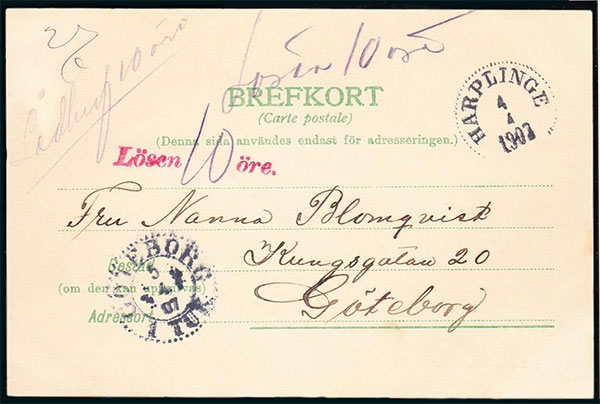 27
Lösen 10 öre
BREFKORT
(Carte postale)
(Denna sida användes endast för adresseringen.)
HARPLINGE
4
1
1907
Lösen 10 öre.
Fru Nanna Blomqvist
Kungsgatan 20
Göteborg
Bostad
(om den kan uppgifvas)
Adressort
GÖTEBORG
5
1
07
1 TUR